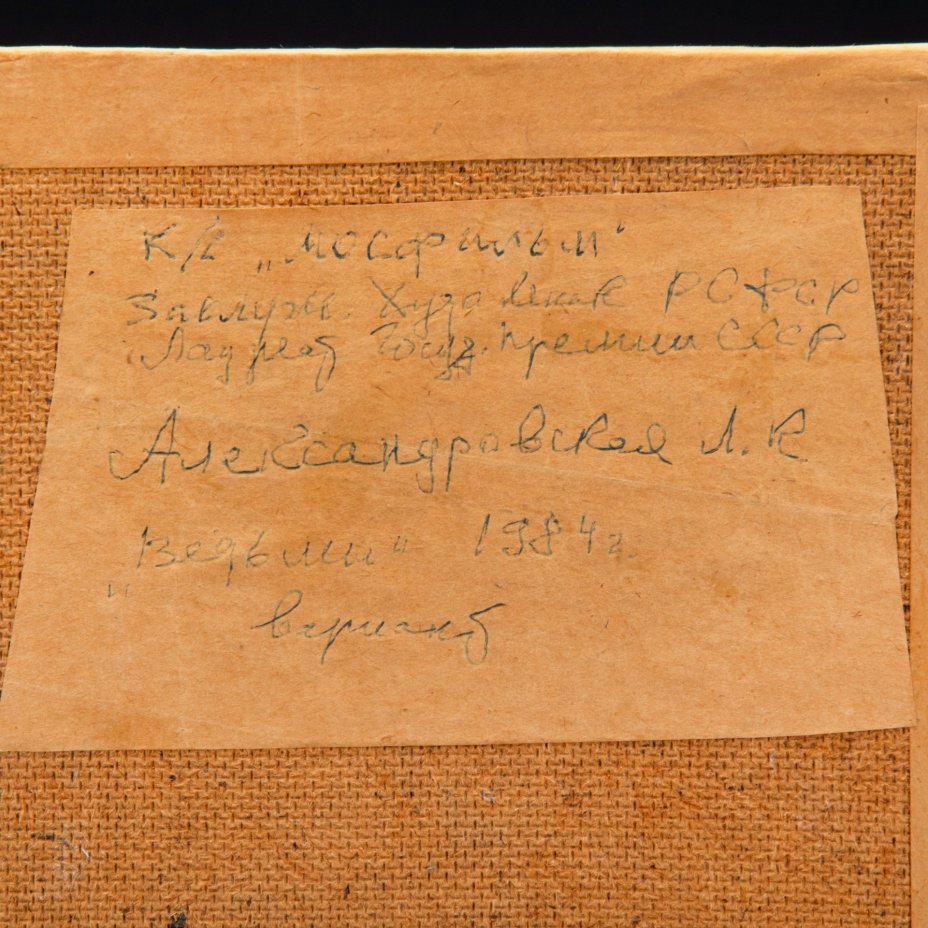 К/с „Мосфильм“
Заслуж. Художник РСФСР
Лауреат Госуд. премии СССР
Александровская Л. К
„Ведьмы“ 1984 г.
вариант